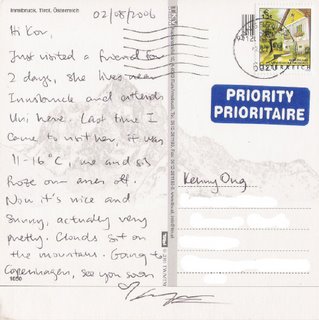 Innsbruck, Tirol, Österreich
02/08/2006
Hi Kov,
Just visited a friend for
2 days, she lives near
Innsbruck and attends
Uni here. Last time I
came to visit her, it was
11-16°C, we and sis
froze our arses off.
Now it's nice and
sunny, actually very
pretty. Clouds sit on
the mountain. Going to
Copenhagen, see you soon
PRIORITY
PRIORITAIRE
Kenny Ong